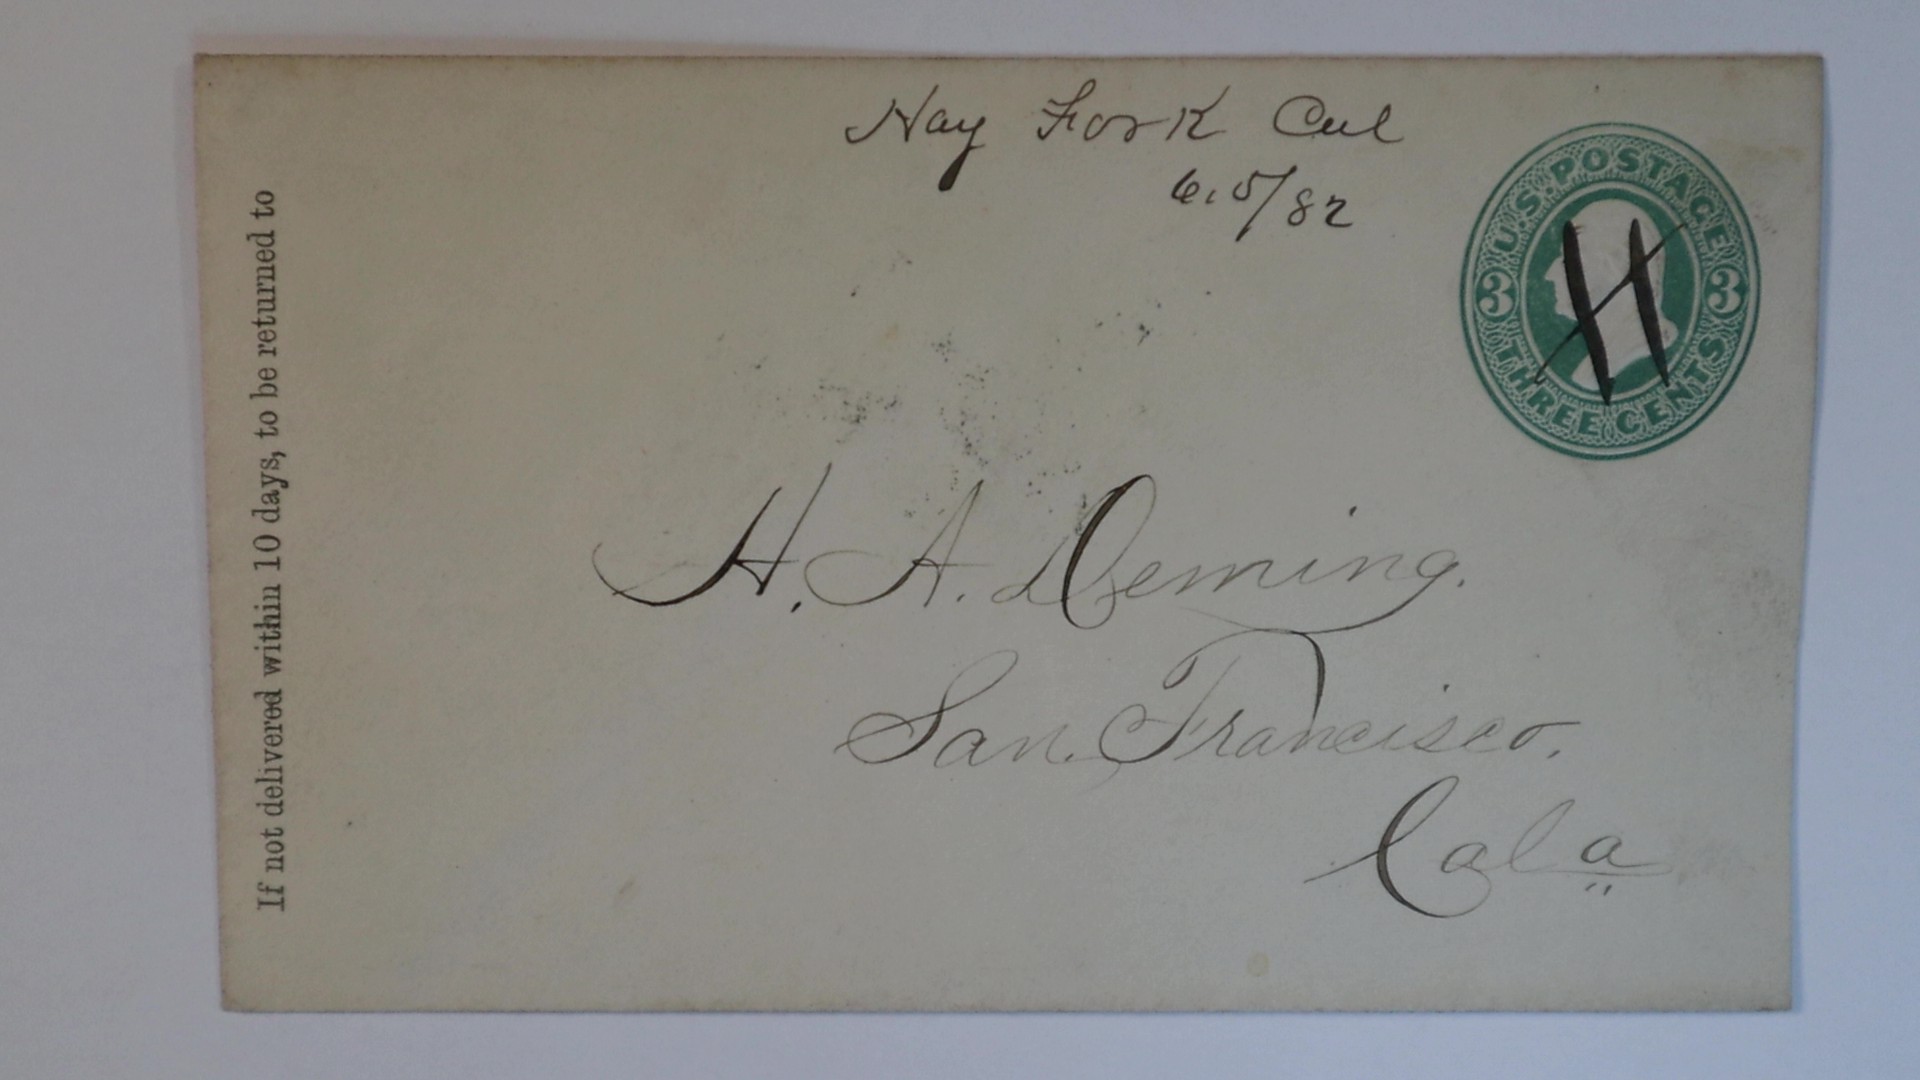 Hay Fork Cal
6.5/82
U.S. POSTAGE
3 3
THREE CENTS
H. A. Deming.
San Francisco.
Cala
If not delivered within 10 days, to be returned to